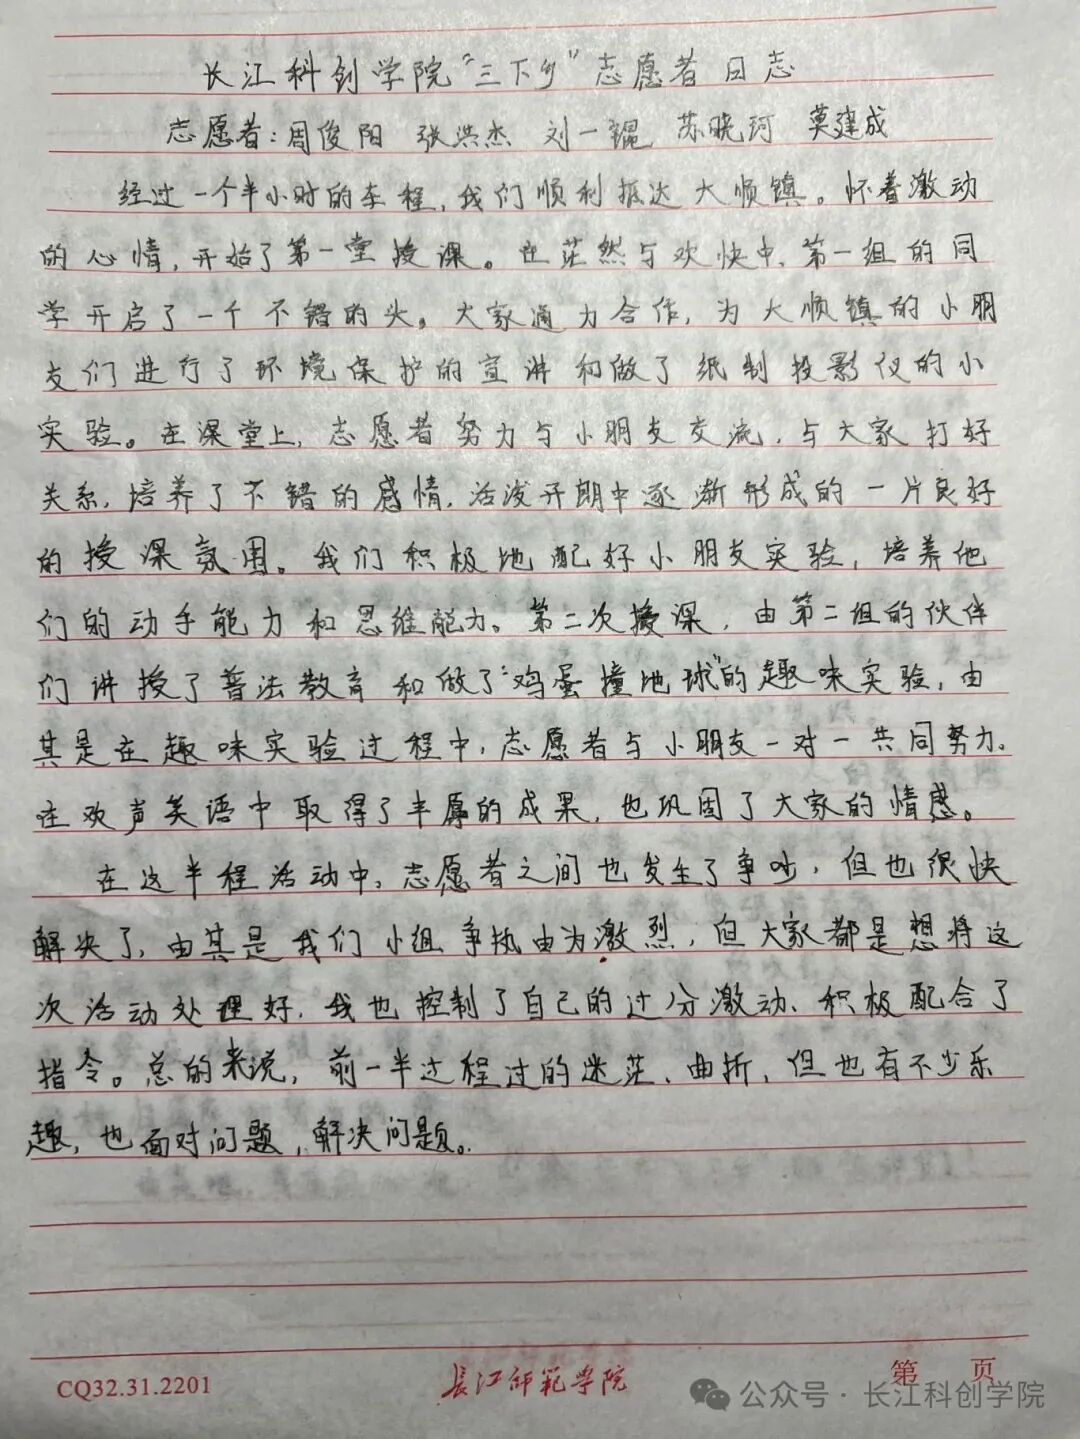 长江科创学院“三下乡”志愿者日志
志愿者:周俊阳 张洪杰 刘一锟 苏晓珂 莫建成
经过一个半小时的车程,我们顺利抵达大顺镇。怀着激动
的心情,开始了第一堂授课。在茫然与欢快中,第一组的同
学开启了一个不错的头。大家通力合作,为大顺镇的小朋
友们进行了环境保护的宣讲和做了纸制投影仪的小
实验。在课堂上,志愿者努力与小朋友交流,与大家打好
关系,培养了不错的感情,活泼开朗中逐渐形成的一片良好
的授课氛围。我们积极地配好小朋友实验,培养他
们的动手能力和思维能力。第二次授课,由第二组的伙伴
们讲授了普法教育和做了“鸡蛋撞地球”的趣味实验,由
其是在趣味实验过程中,志愿者与小朋友一对一共同努力。
在欢声笑语中取得了丰厚的成果,也巩固了大家的情感。
在这半程活动中,志愿者之间也发生了争吵,但也很快
解决了,由其是我们小组争执由为激烈,但大家都是想将这
次活动处理好,我也控制了自己的过分激动、积极配合了
指令。总的来说,前一半过程过的迷茫、曲折,但也有不少乐
趣,也面对问题,解决问题。
CQ32.31.2201 长江师范学院 第 页
公众号·长江科创学院